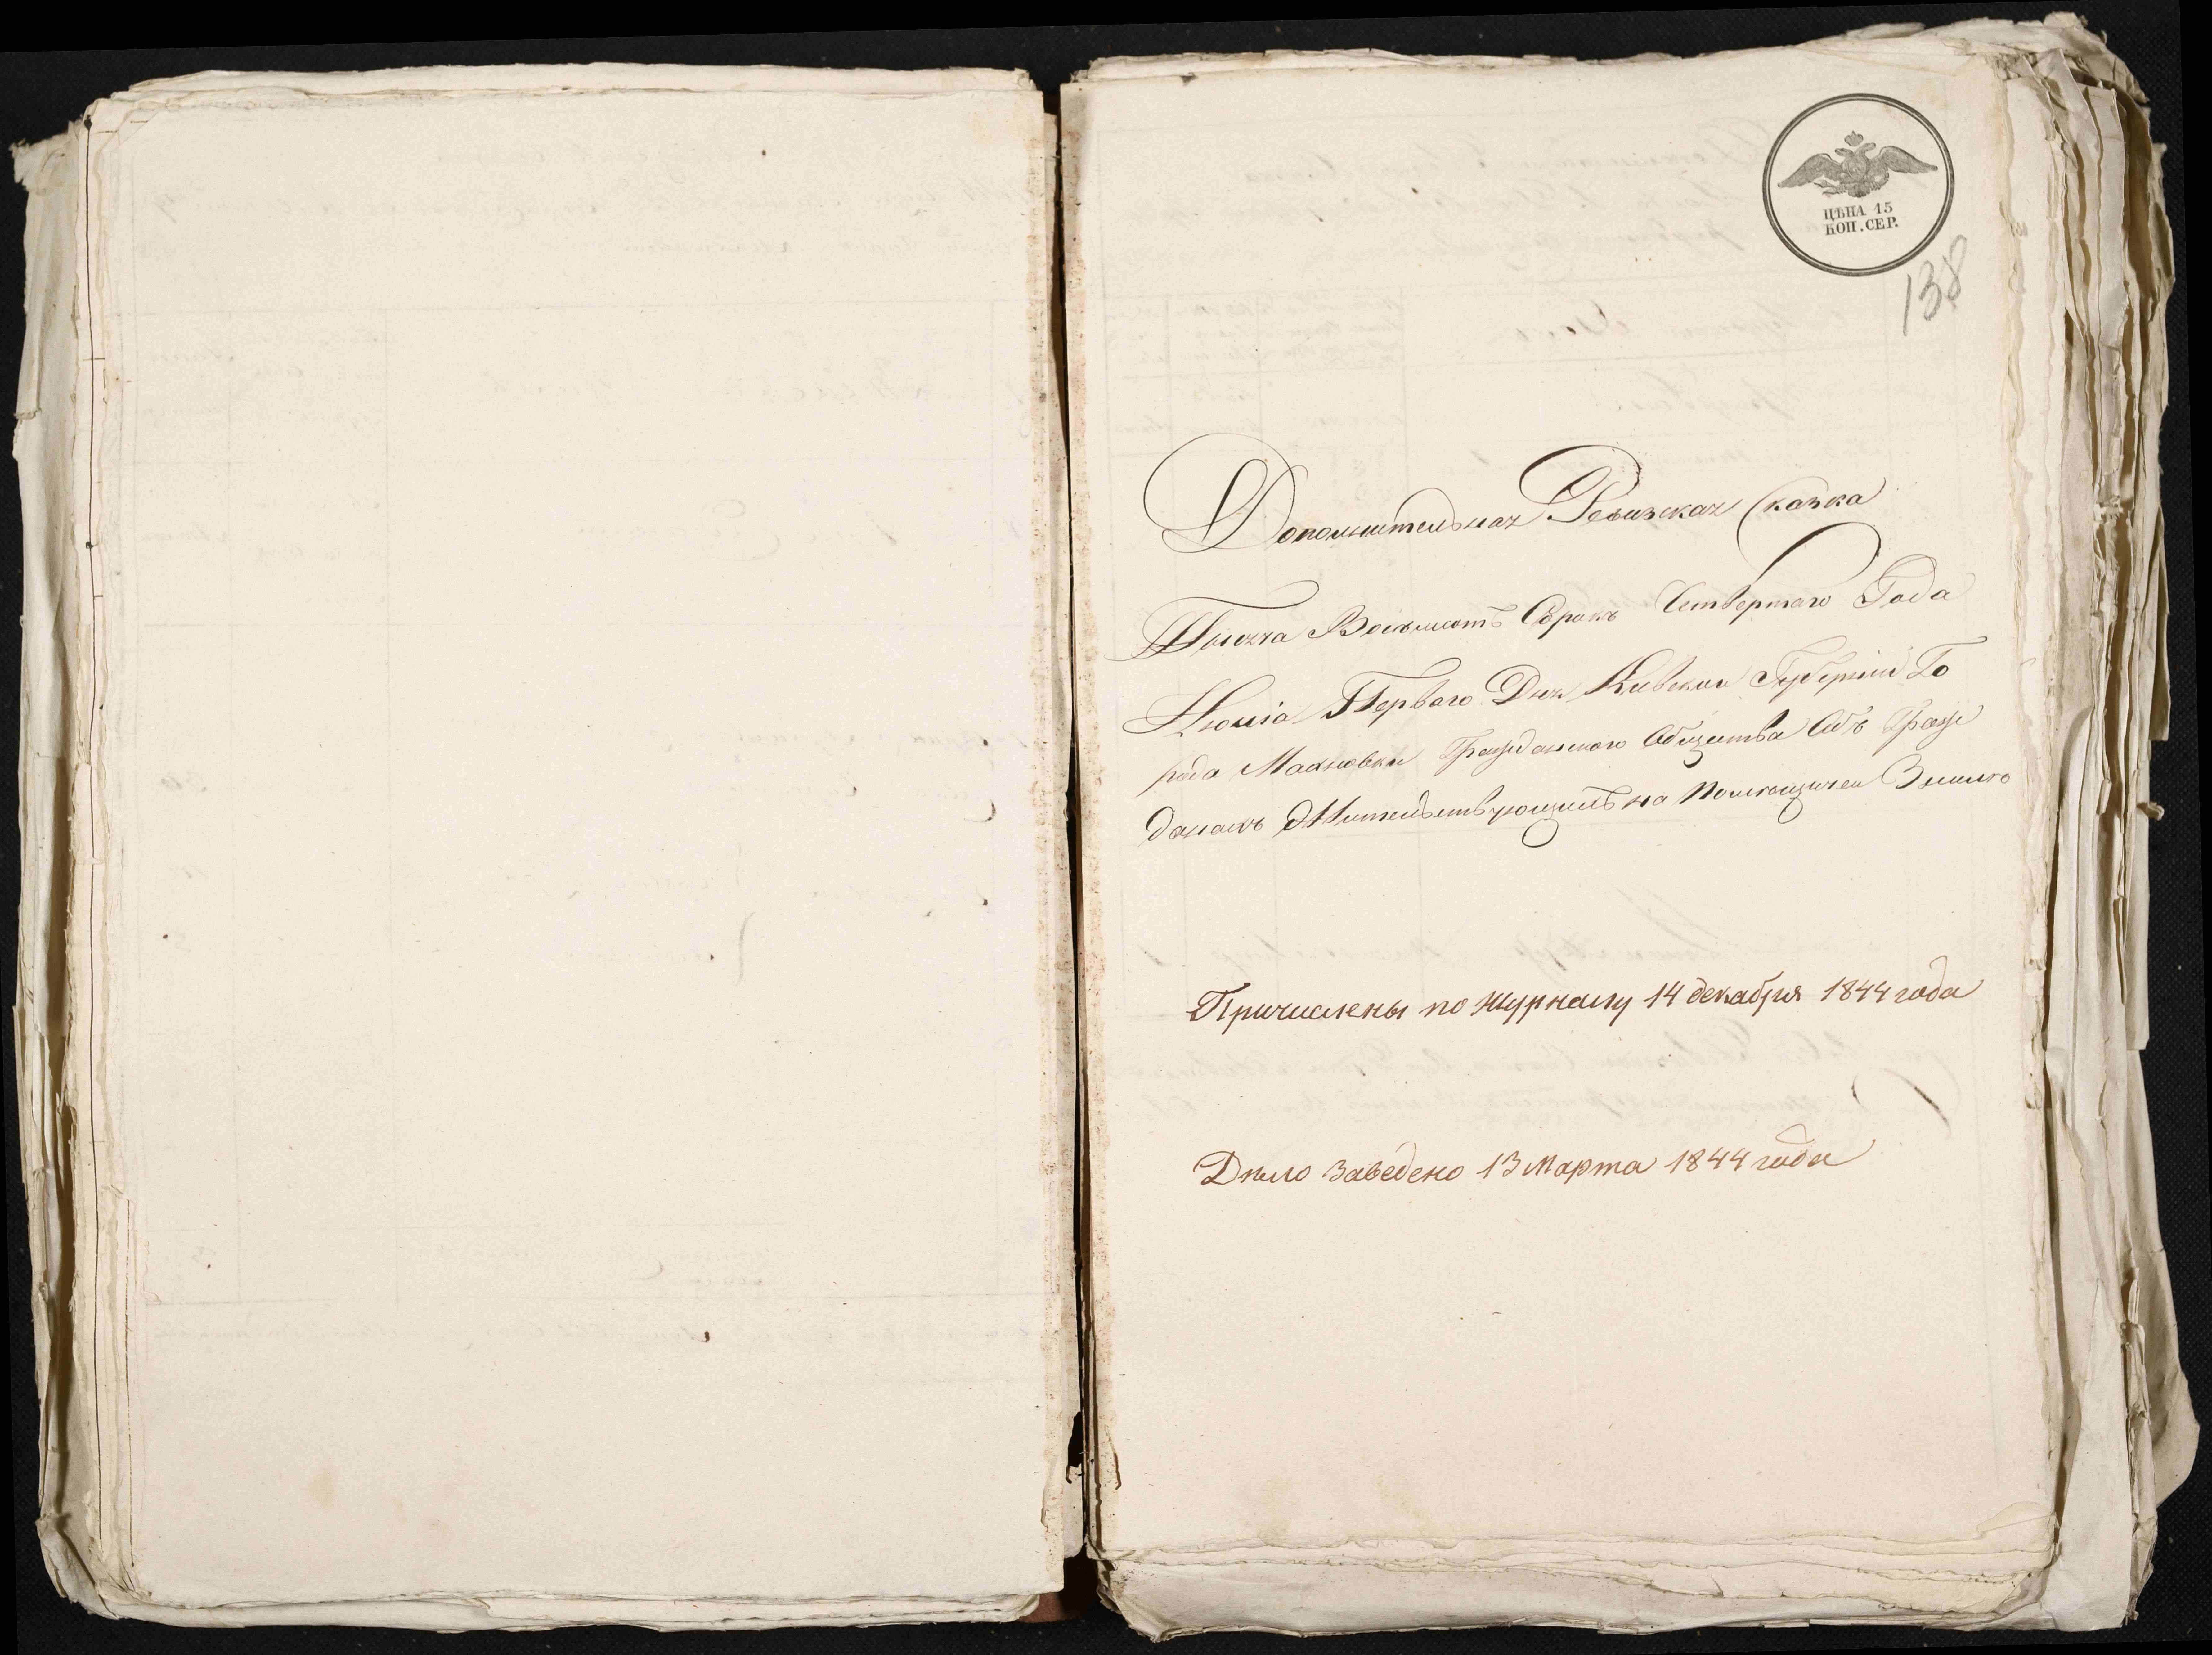 ЦѢНА 15
КОП. СЕР.
138
Дополнительная Ревизская Сказка
Тысяча Восемьсотъ Сорокъ Четвертаго Года
Июня Перваго Дня Киевской Губернии Го
рода Махновки Гражданского Общества Объ Граж
данахъ Жительствующихъ на Помещичей Земле
Причислены по журналу 14 декабря 1844 года
Дѣло заведено 13 Марта 1844 года